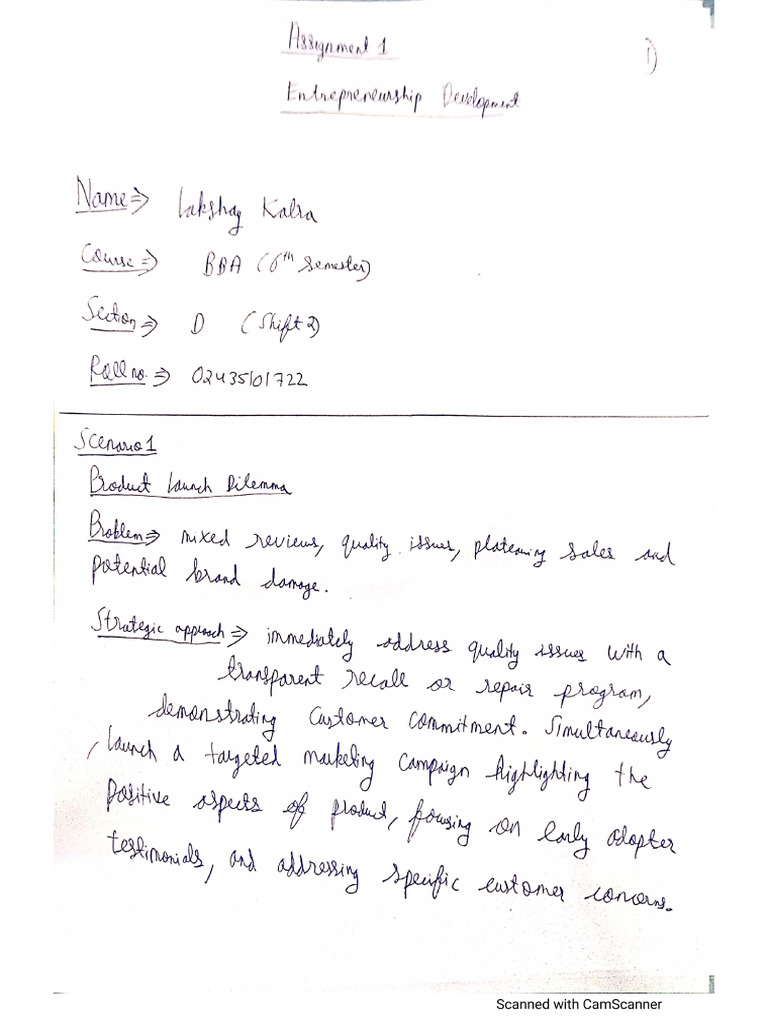 Assignment 1
1)
Entrepreneurship Development
Name => Lakshay Kalra
Course => BBA (6th Semester)
Section => D (Shift 2)
Roll no. => 02435101722
Scenario 1
Product Launch Dilemma
Problem => mixed reviews, quality issues, plateauing sales and
potential brand damage.
Strategic approach => immediately address quality issues with a
transparent recall or repair program,
demonstrating customer commitment. Simultaneously
, launch a targeted marketing campaign highlighting the
positive aspects of product, focusing on early adopter
testimonials, and addressing specific customer concerns.
Scanned with CamScanner